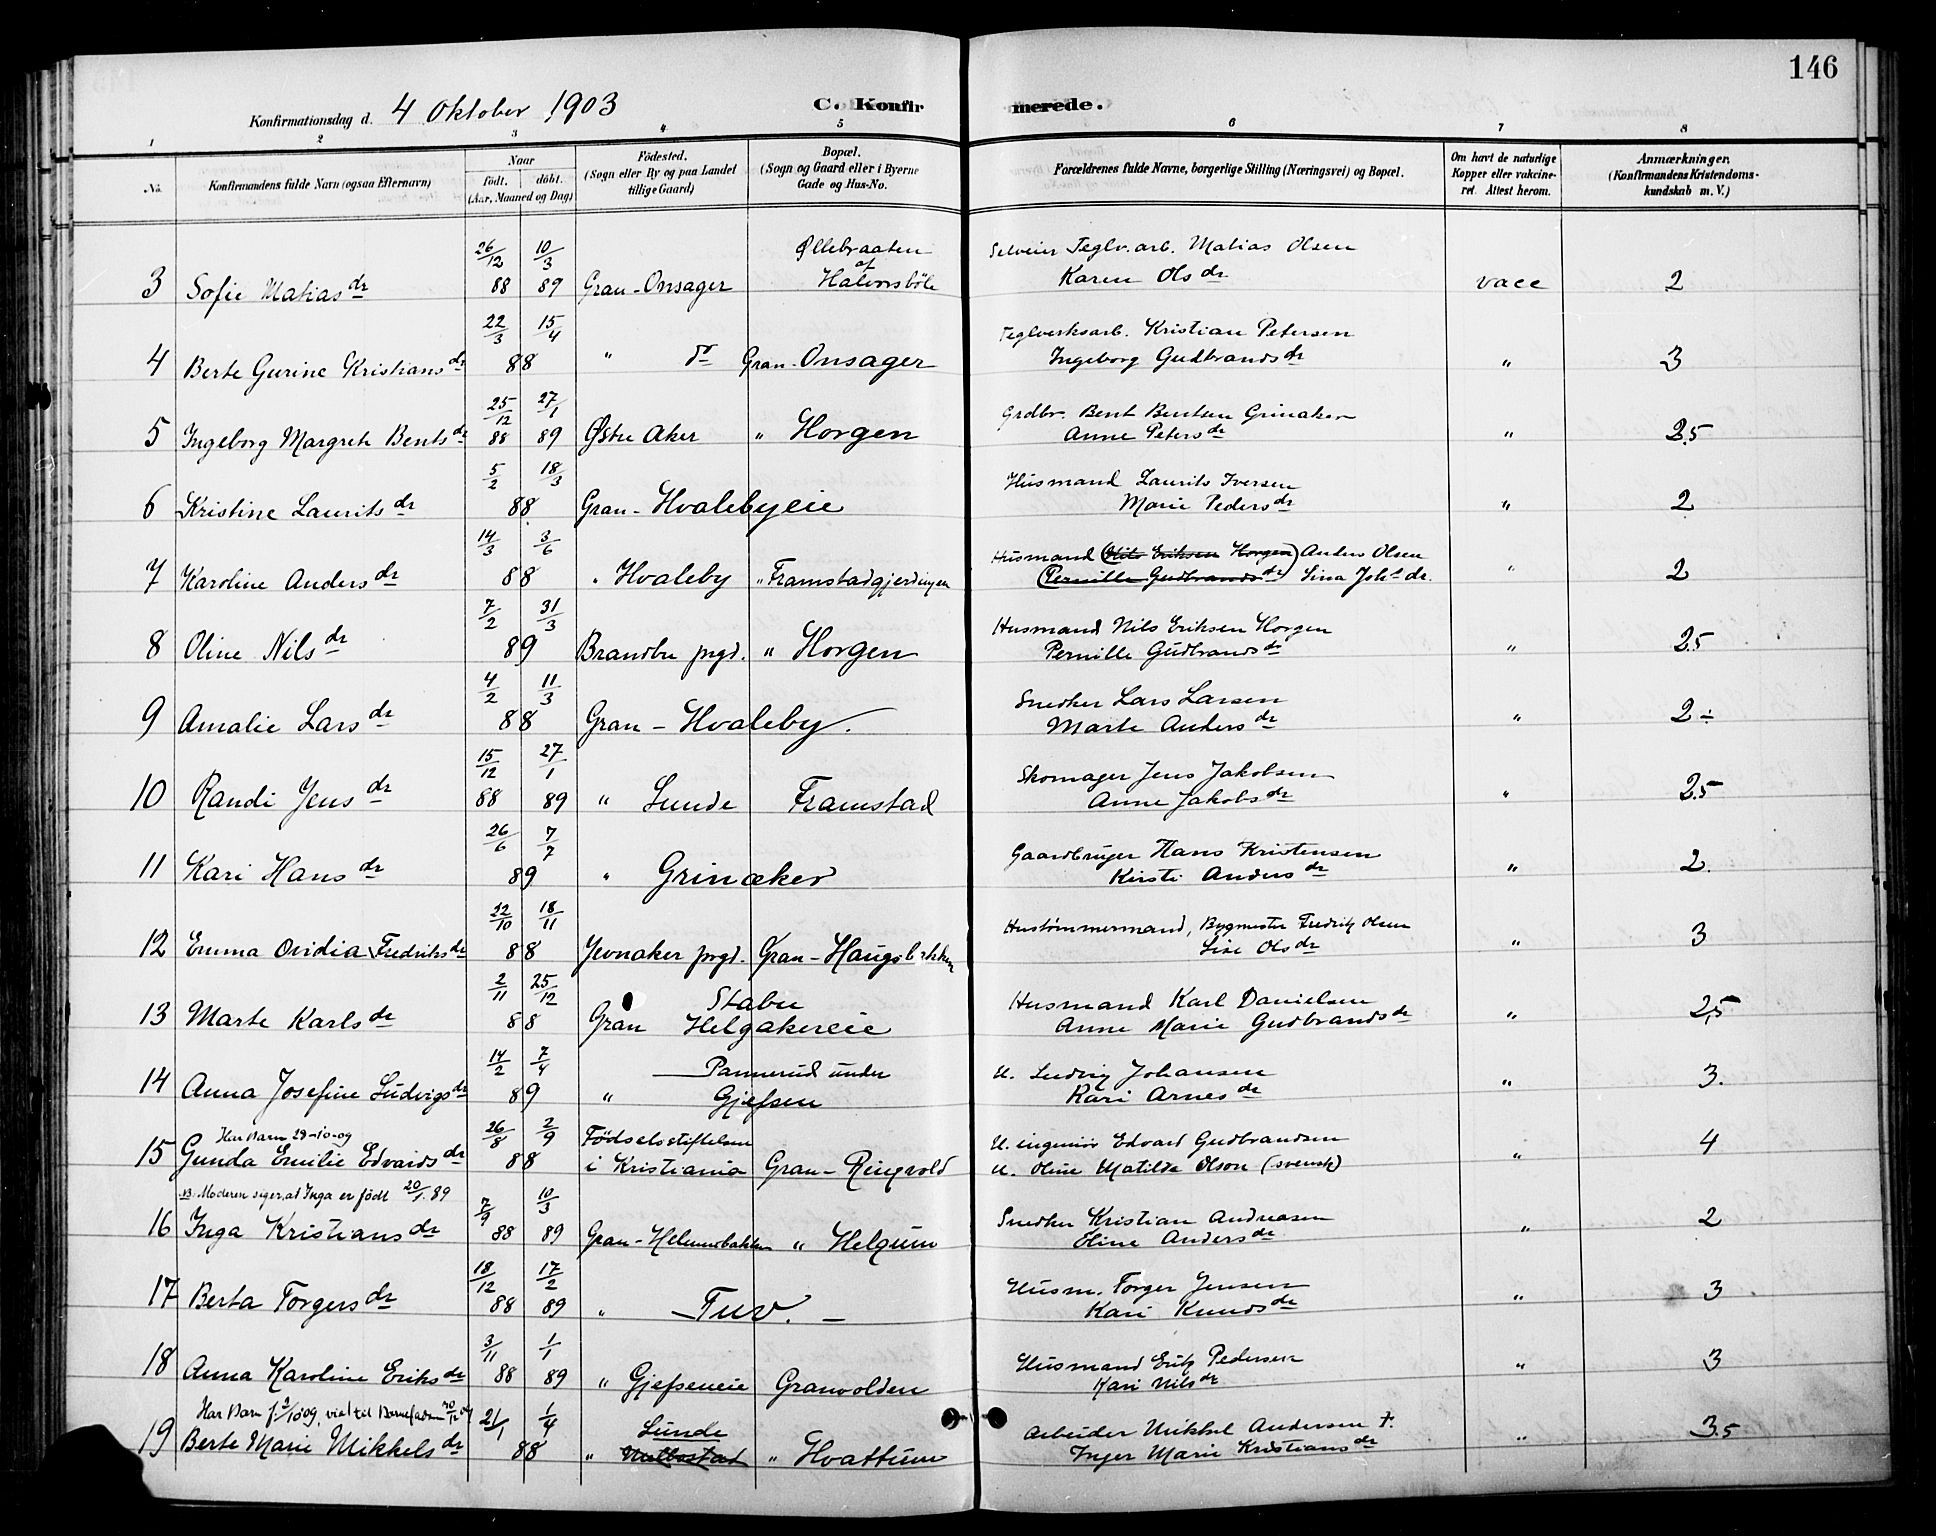 146
Konfirmationsdag d. 4 Oktober 1903
C. Konfirmerede.
1 2 3 4 5 6 7 8
No. Konfirmandens fulde Navn (ogsaa Efternavn) Naar født. døbt. (Aar, Maaned og Dag) Fødested. (Sogn eller By og paa Landet tillige Gaard) Bopæl. (Sogn og Gaard eller i Byerne Gade og Hus-No. Forældrenes fulde Navne, borgerlige Stilling (Næringsvei) og Bopæl. Om havt de naturlige Kopper eller vakcineret. Attest herom. Anmærkninger. (Konfirmandens Kristendomskundskab m. V.)
3 Sofie Matias dr 26/12 88 10/3 89 Gran - Onsager Øllebraaten af Halvorsböle Selveier Teglv. arb. Matias Olsen Karen Ols dr vacc 2
4 Berte Gurine Kristians dr 22/3 15/4 88 " do Gran - Onsager Teglverksarb. Kristian Petersen Ingeborg Gudbrands dr " 3
5 Ingeborg Margrete Bents dr 25/12 88 27/1 89 Østre Aker " Horgen Grdbr. Bent Bentsen Grinaker Anne Peters dr " 2.5
6 Kristine Laurits dr 5/2 18/3 88 Gran - Hvalebyeie Husmand Laurits Iversen Marie Peders dr " 2
7 Karoline Anders dr 14/3 3/6 88 " Hvaleby " Framstadgjerdingen Husmand (Nils Eriksen Horgen) Anders Olsen (Pernille Gudbrands dr) Lina Johs dr. " 2
8 Oline Nils dr 7/2 31/3 89 Brandbu prgd. " Horgen Husmand Nils Eriksen Horgen Pernille Gudbrands dr " 2.5
9 Amalie Lars dr 4/2 11/3 88 Gran - Hvaleby. Snedker Lars Larsen Marte Anders dr " 2 ÷
10 Randi Jens dr 15/12 88 27/1 89 " Lunde Framstad Skomager Jens Jakobsen Anne Jakobs dr " 2.5
11 Kari Hans dr 26/6 7/7 89 " Grinaker Gaardbruger Hans Kristensen Kirsti Anders dr " 2.
12 Emma Ovidia Fredriks dr 22/10 18/11 88 Jevnaker prgd. Gran - Haugsbakken Hustømmermand, Bygmester Fredrik Olsen Lise Ols dr " 3
13 Marte Karls dr 2/11 25/12 88 Gran Stabu Helgakereie Husmand Karl Danielsen Anne Marie Gudbrands dr " 2,5
14 Anna Josefine Ludvigs dr 14/2 7/4 89 " Pannerud under Gjefsen U. Ludvig Johansen Kari Arnes dr " 3.
Har Barn 29-10-09
15 Gunda Emilie Edvards dr 26/8 2/9 88 Fødselsstiftelsen i Kristiania Gran - Ringvold U. ingeniör Edvard Gudbrandsen U. Oline Matilda Olson (svensk) " 4
NB. Moderen siger, at Inga er født 20/1. 89
16 Inga Kristians dr 7/9 88 10/3 89 Gran - Helmensbakken " Helgum Snedker Kristian Andreasen Eline Anders dr " 2
17 Berta Torgers dr 18/12 88 17/2 89 " Tuv. Husm. Torger Jensen Kari Knuds dr " 3
18 Anna Karoline Eriks dr 3/11 88 1/1 89 " Gjefseneie Granvolden Husmand Erik Pedersen Kari Nils dr " 3
Har Barn f. 2/10 09, viet til Barnefaderen
19 Berte Marie Mikkels dr 21/1 1/4 88 " Lunde Mælbostad " Hvattum Arbeider Mikkel Andersen †. Inger Marie Kristians dr " 3.5